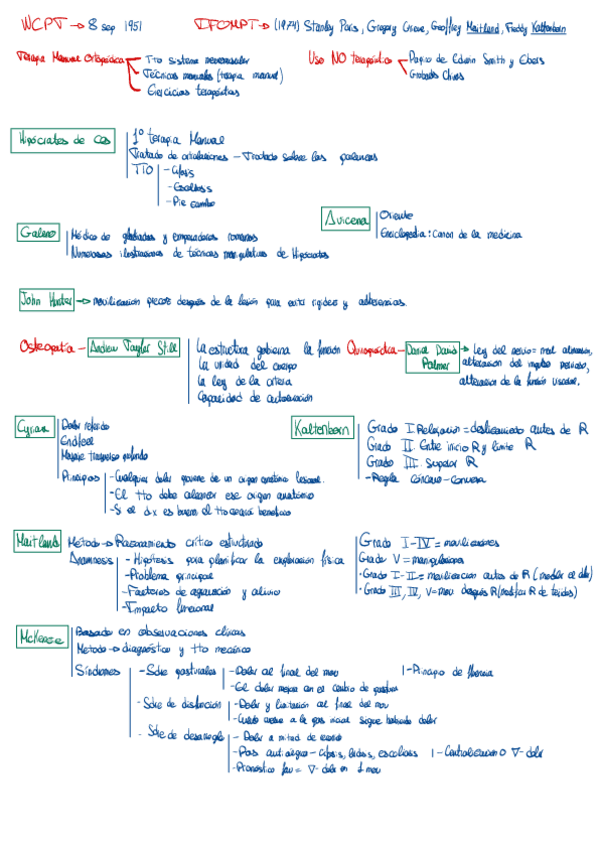 WCPT → 8 sep 1951
IFOMPT → (1974) Stanley Paris, Gregory Grieve, Geoffrey Maitland, Freddy Kaltenborn
Terapia Manual Ortopédica
Tto sistema neuromuscular
Técnicas manuales (terapia manual)
Ejercicios terapéuticos
Uso NO terapéutico
Papiro de Edwin Smith y Ebers
Grabados Chinos
Hipócrates de Cos
1º terapia Manual
Tratado de articulaciones - Tratado sobre las palancas
TTO
- Cifosis
- Escoliosis
- Pie cambo
Avicena
Oriente
Enciclopedia: Canon de la medicina
Galeno
Médico de gladiadores y emperadores romanos
Numerosas ilustraciones de técnicas manipulativas de Hipócrates
John Hunter → movilización precoz después de la lesión para evitar rigidez y adherencias.
Osteopatía - Andrew Taylor Still
La estructura gobierna la función
La unidad del cuerpo
La ley de la arteria
Capacidad de autocuración
Quiropráctica - Daniel David Palmer → Ley del nervio = mal alineación,
alteración del impulso nervioso,
alteración de la función visceral.
Cyriax
Dolor referido
Endfeel
Masaje transverso profundo
Principios
- Cualquier dolor proviene de un origen anatómico lesional.
- El tto debe alcanzar ese origen anatómico
- Si el dx es bueno el tto será beneficioso
Kaltenborn
Grado I Relajación = deslizamiento antes de R
Grado II. Entre inicio R y límite R
Grado III. Superar R
- Regla cóncavo-convexa
Maitland
Método → Razonamiento crítico estructurado
Anamnesis
- Hipótesis para planificar la exploración física
- Problema principal
- Factores de agravación y alivio
- Impacto funcional
Grado I-IV = movilizaciones
Grado V = manipulaciones
· Grado I-II = movilización antes de R (modular el dolor)
· Grado III, IV, V = mov después R (modifica R de tejidos)
McKenzie
Basado en observaciones clínicas
Método → diagnóstico y tto mecánico
Síndromes
- Sdre posturales
- Dolor al final del mov
- El dolor mejora con el cambio de postura
- Principio de
- Sdre de disfunción
- Dolor y limitación al final del mov
- Cuando vuelve a la pos inicial sigue habiendo dolor
- Sdre de desarreglo
- Dolor a mitad de recorrido
- Pos antiálgica - cifosis, lordosis, escoliosis
- Centralización O ∇ dolor
- Pronóstico fav = ∇ dolor en 1 mov